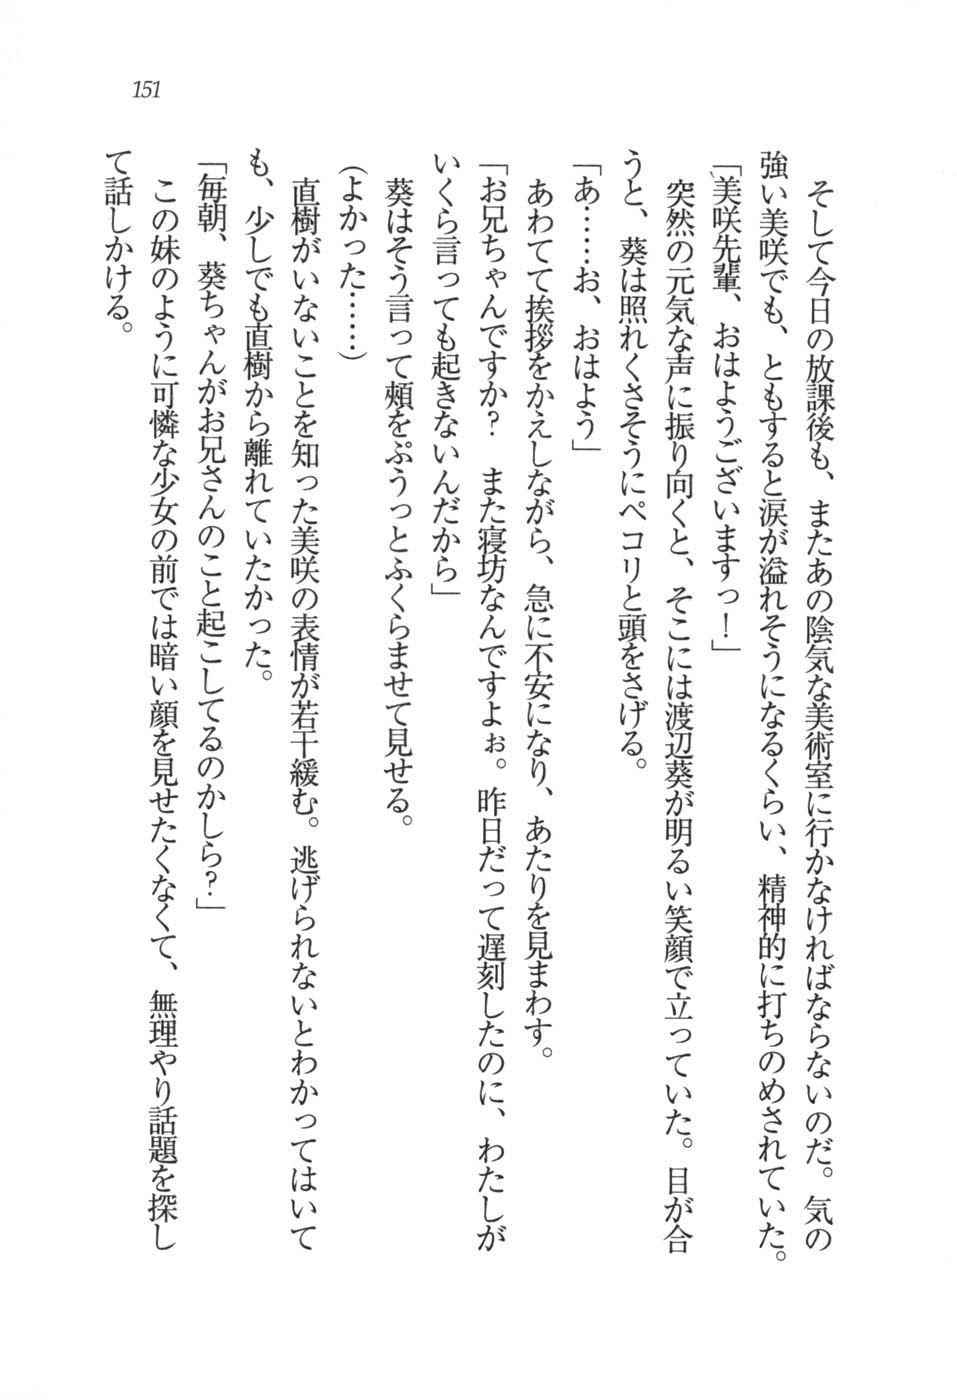 151
そして今日の放課後も、またあの陰気な美術室に行かなければならないのだ。気の
強い美咲でも、ともすると涙が溢れそうになるくらい、精神的に打ちのめされていた。
「美咲先輩、おはようございますっ！」
突然の元気な声に振り向くと、そこには渡辺葵が明るい笑顔で立っていた。目が合
うと、葵は照れくさそうにペコリと頭をさげる。
「あ……お、おはよう」
あわてて挨拶をかえしながら、急に不安になり、あたりを見まわす。
「お兄ちゃんですか？　また寝坊なんですよぉ。昨日だって遅刻したのに、わたしが
いくら言っても起きないんだから」
葵はそう言って頬をぷうっとふくらませて見せる。
（よかった……）
直樹がいないことを知った美咲の表情が若干緩む。逃げられないとわかってはいて
も、少しでも直樹から離れていたかった。
「毎朝、葵ちゃんがお兄さんのこと起こしてるのかしら？」
この妹のように可憐な少女の前では暗い顔を見せたくなくて、無理やり話題を探し
て話しかける。